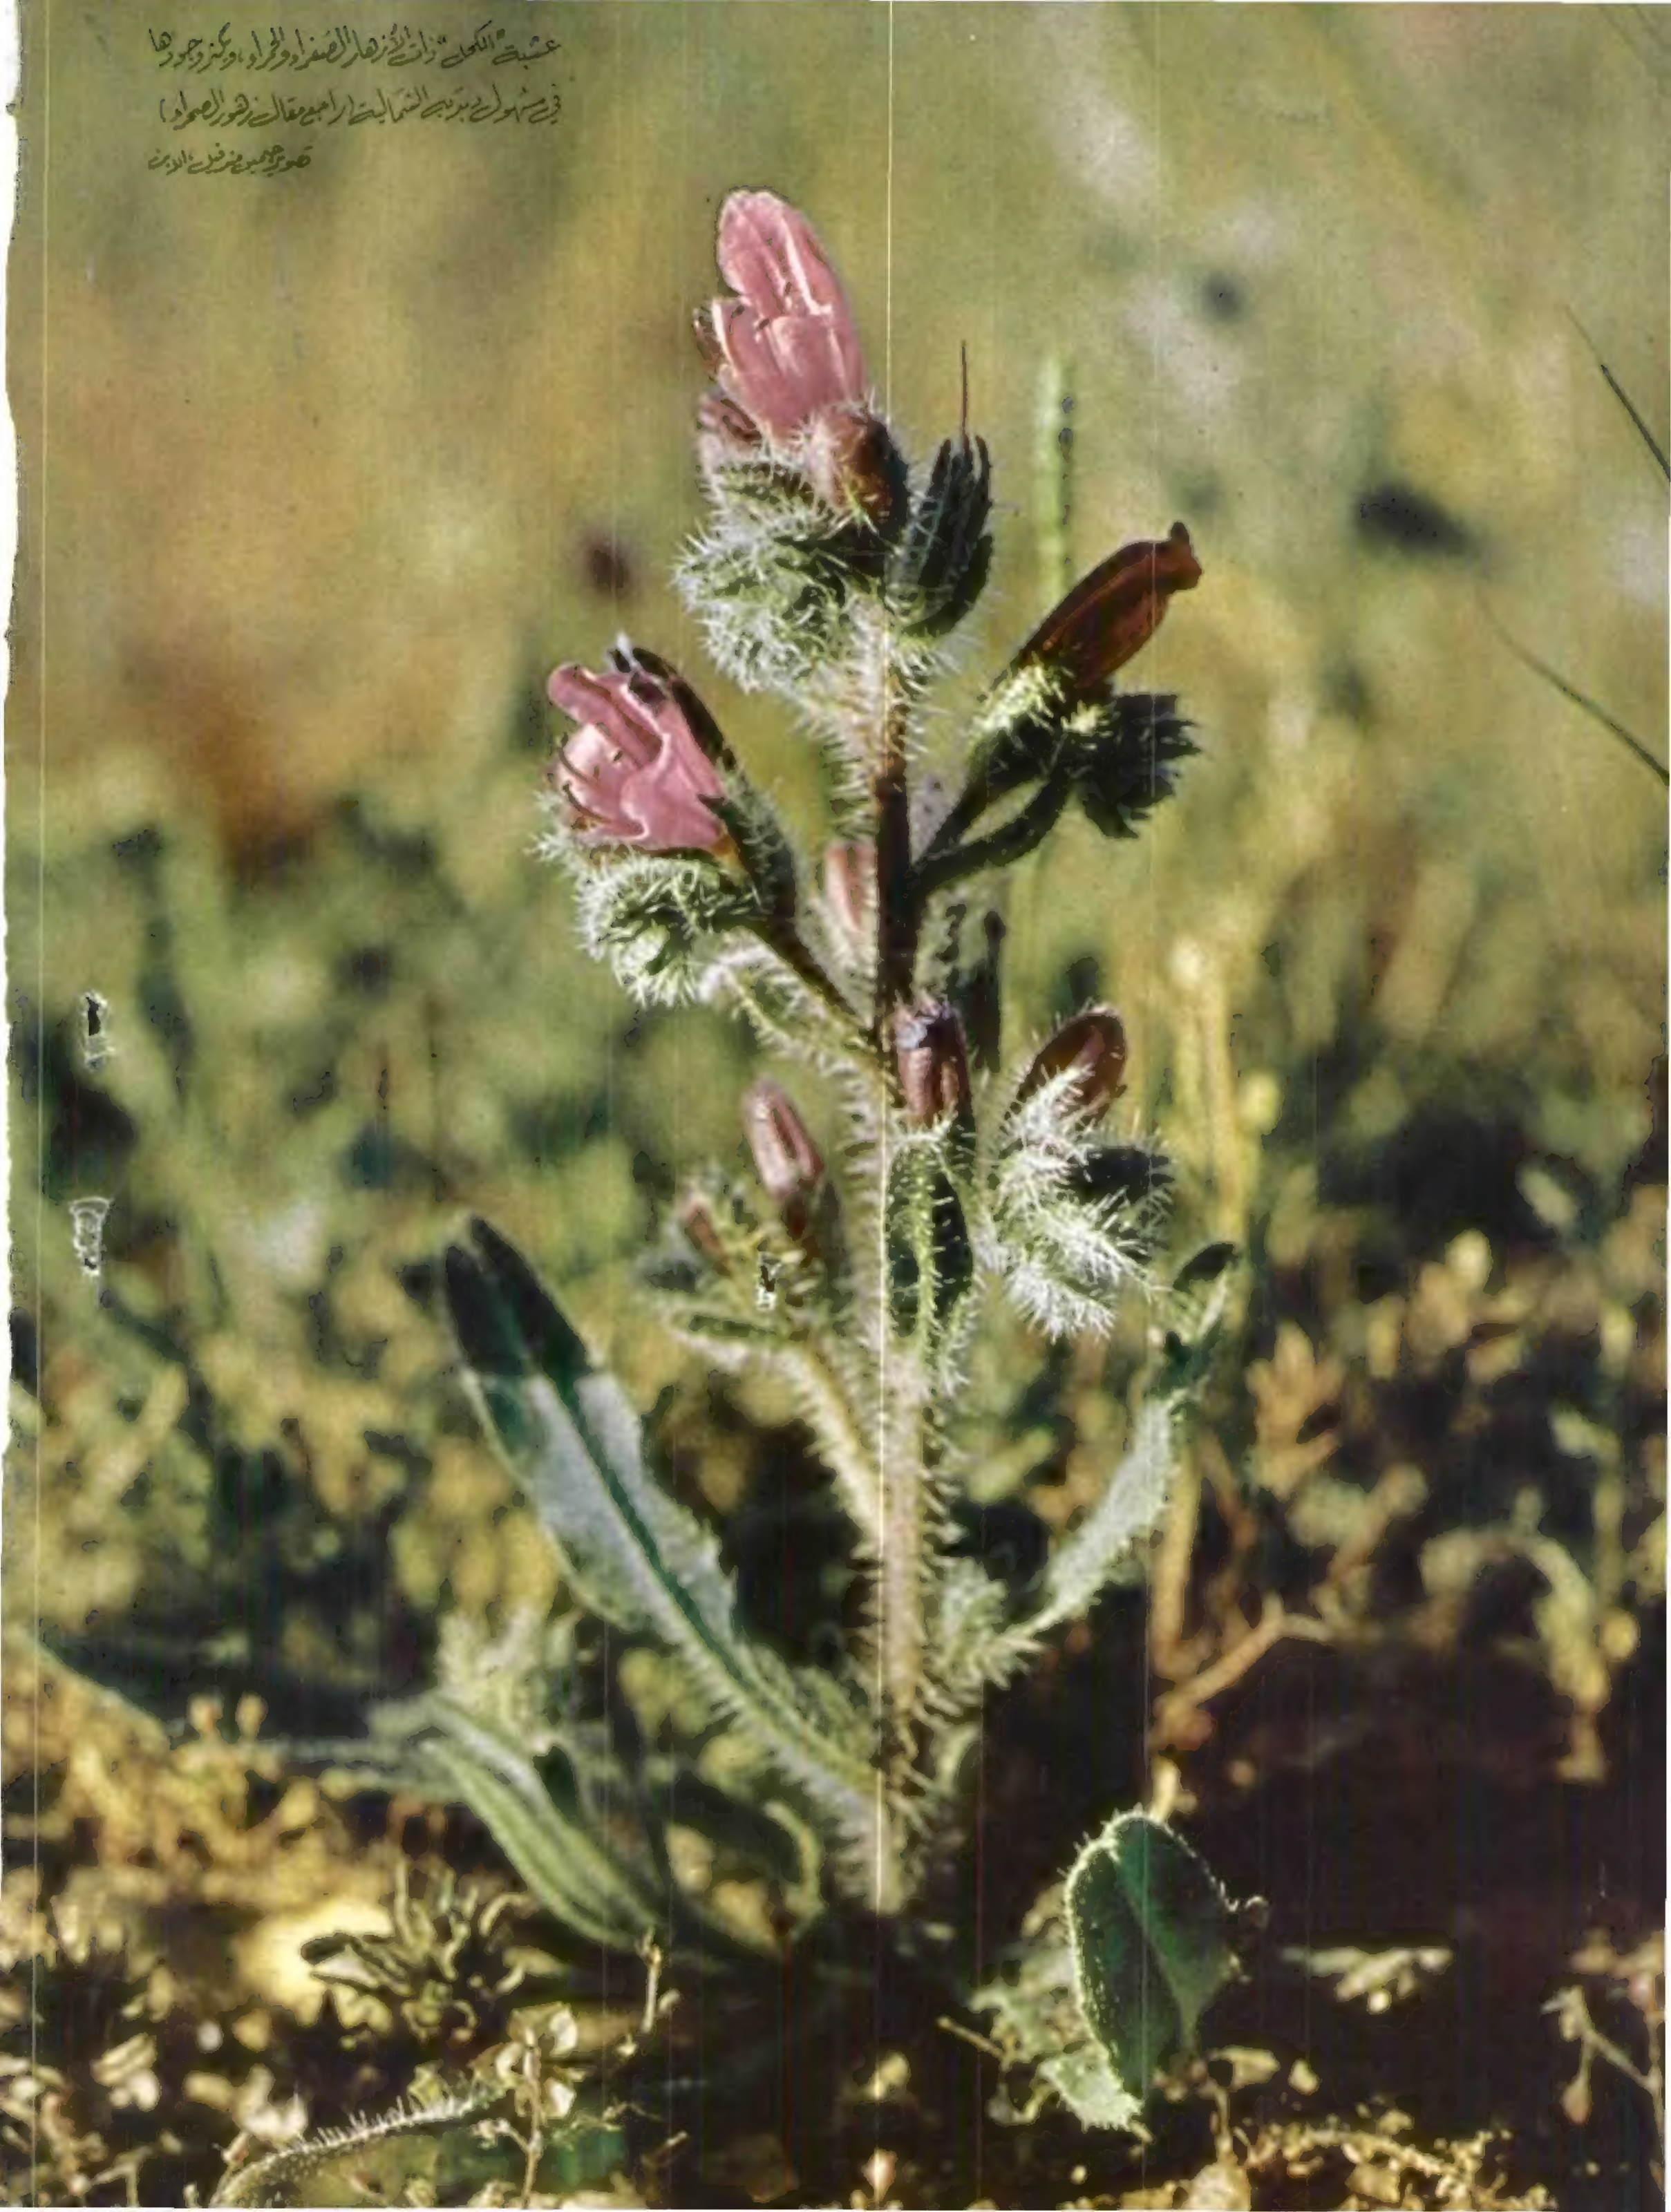 عشبة "الكحل" ذات الأزهار الصفراء والحمراء، ويكثر وجودها
في سهول تدمر الشمالية (راجع مقال زهور الصحراء)
تصوير